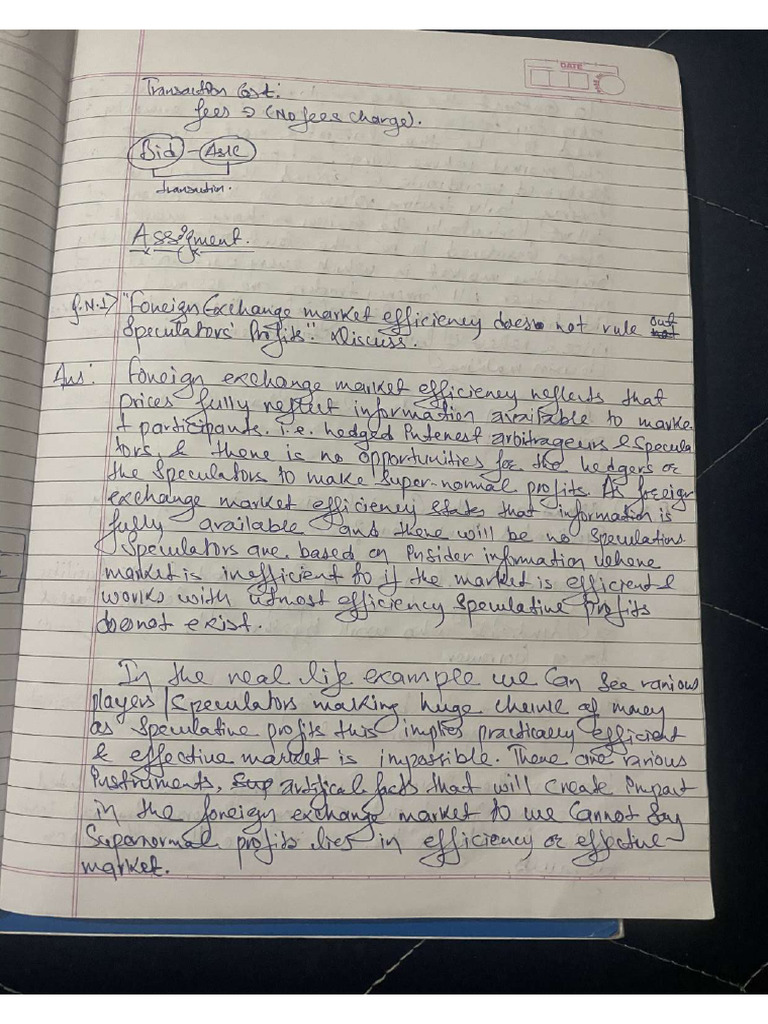 DATE
Transaction Cost:
fees → (No fees charge).
Bid - Ask
transaction.
Assignment.
Q.N.1) "Foreign Exchange market efficiency does not rule out
Speculators' Profits". Discuss.
Ans: Foreign exchange market efficiency reflects that
prices fully reflect information available to marke
t participants. i.e. hedged interest arbitrageurs & specula
tors, & there is no opportunities for the hedgers or
the speculators to make super-normal profits. As foreign
exchange market efficiency states that information is
fully available and there will be no speculations
Speculators are based on insider information where
market is inefficient so if the market is efficient &
works with utmost efficiency speculative profits
does not exist.
In the real life example we can see various
players / speculators making huge of money
as speculative profits this implies practically efficient
& effective market is impossible. There are various
instruments, artifical facts that will create impact
in the foreign exchange market so we cannot say
Supernormal profits lies in efficiency or effective
market.